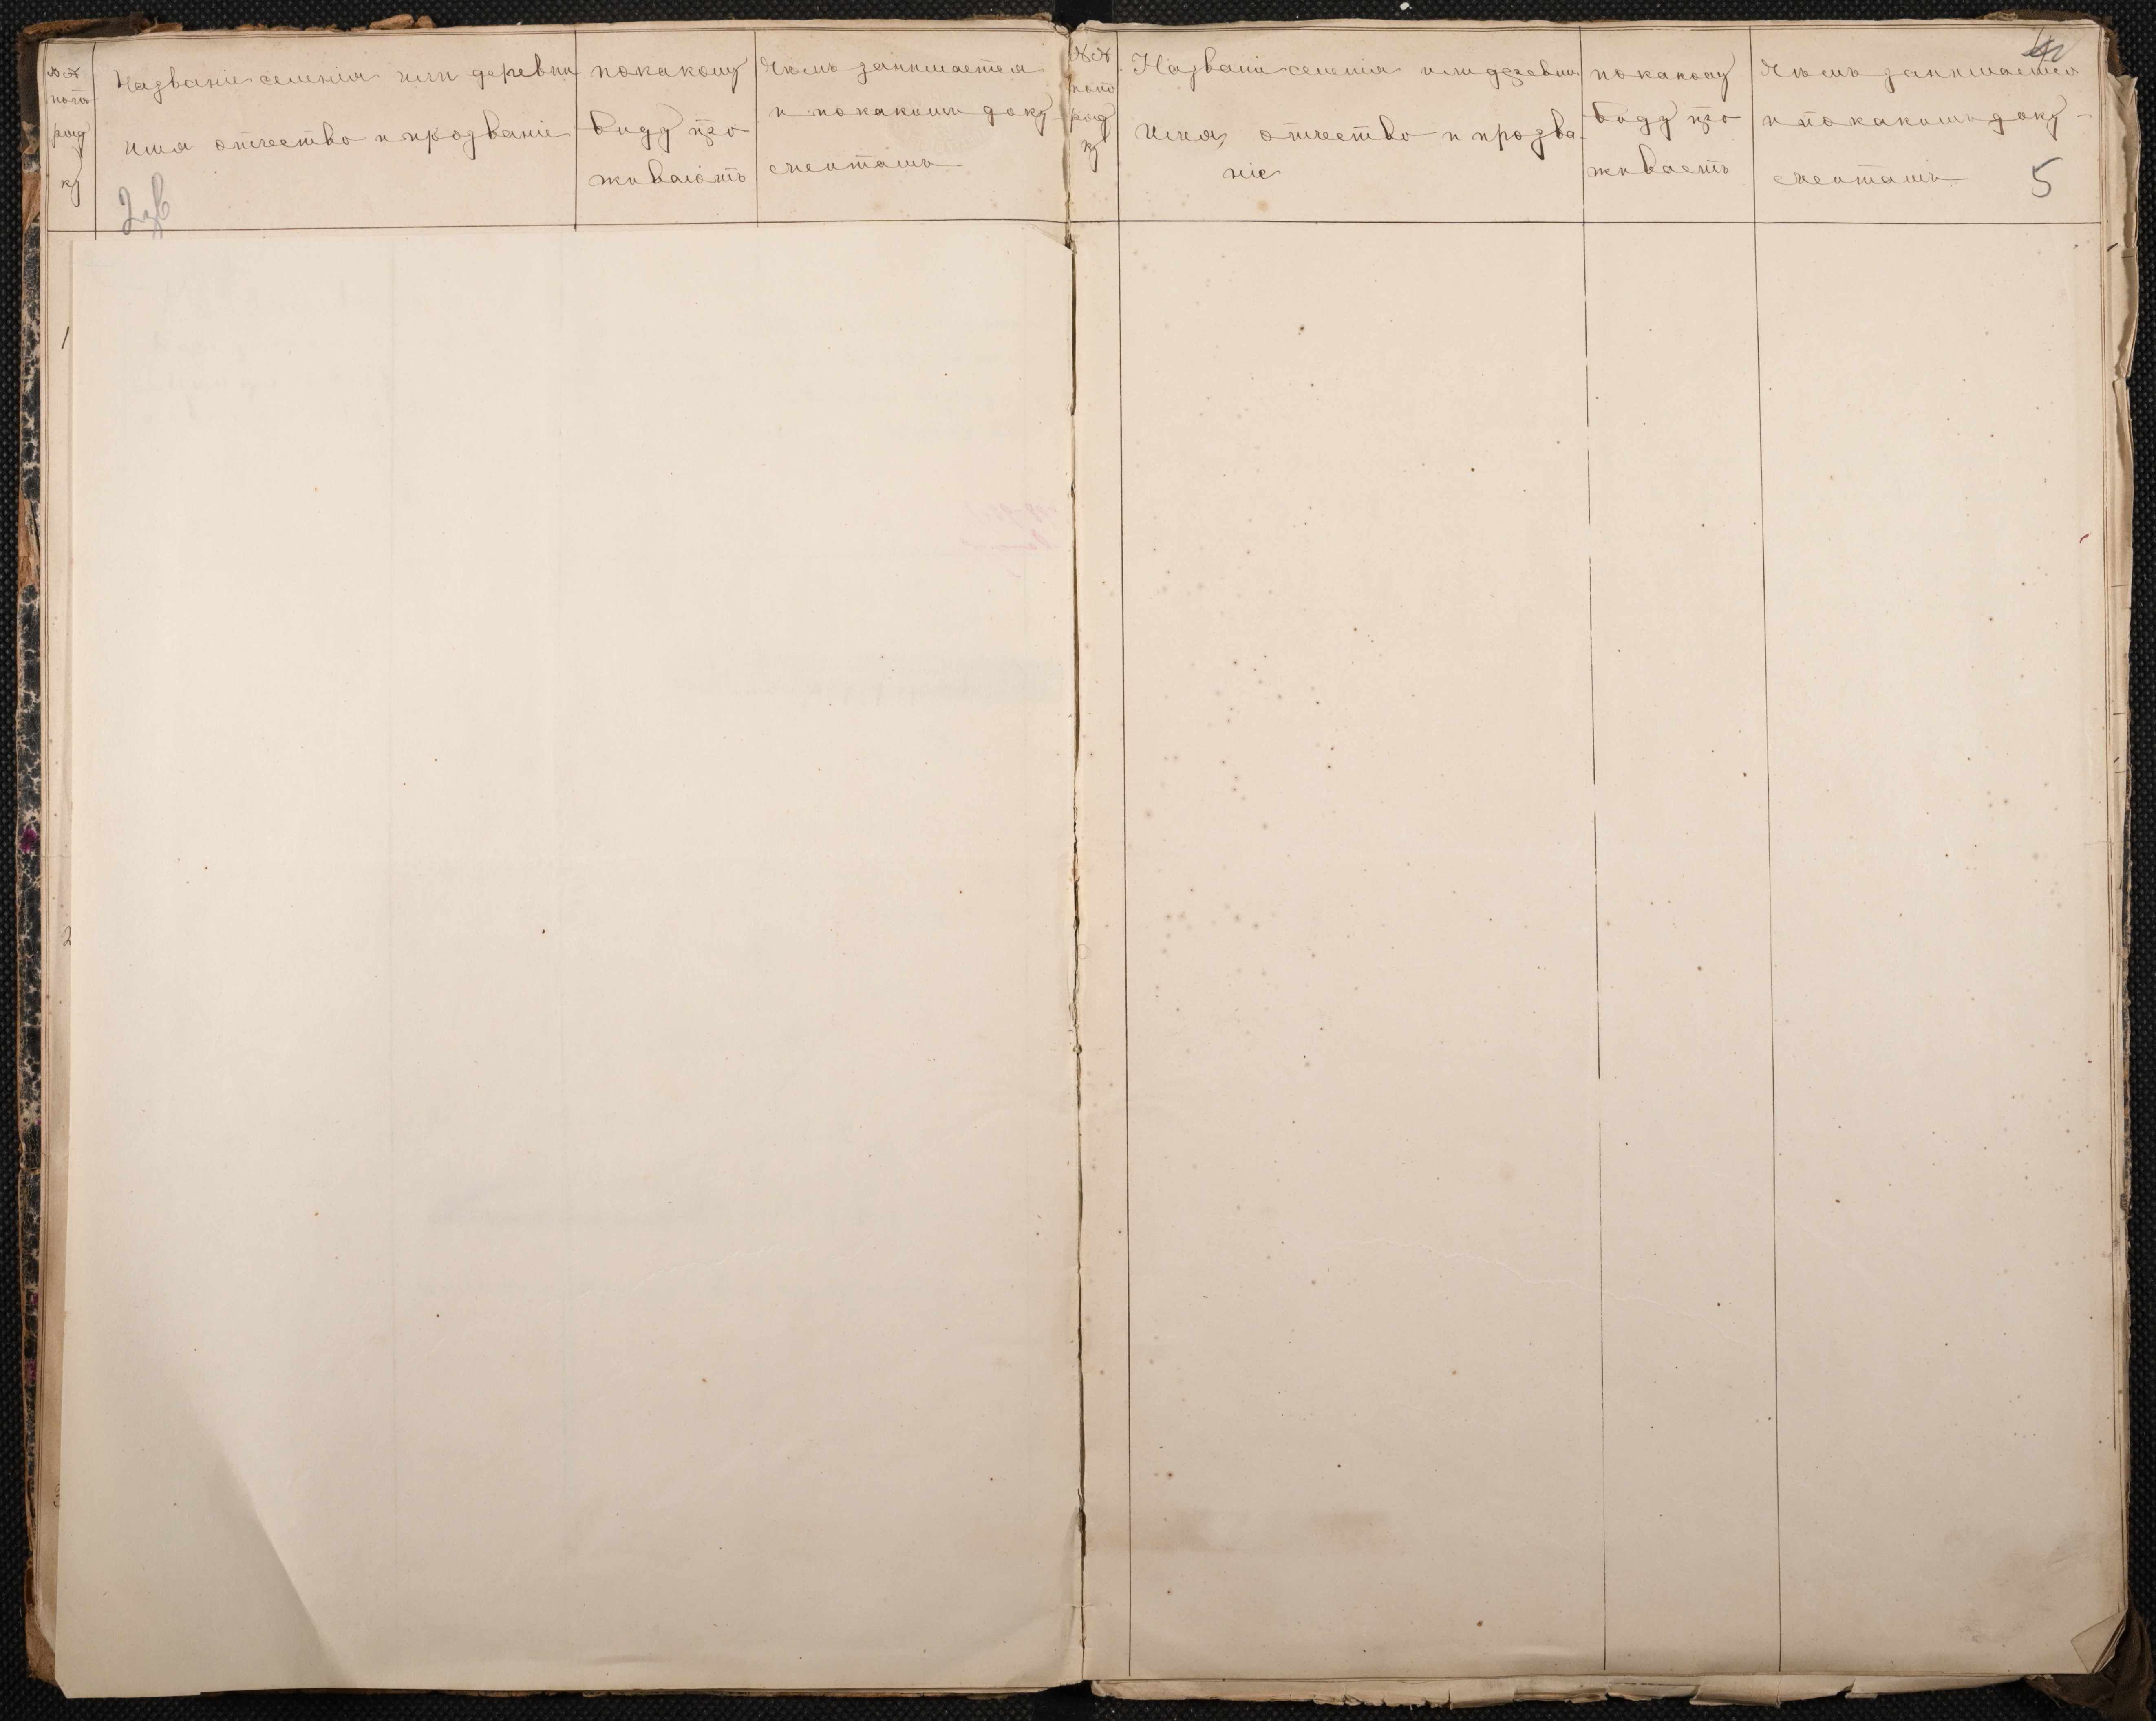 №№
попо
ряд
ку
Названіе селенія или деревни
Имя отчество и прозваніе
покакому
виду про
живаютъ
Чѣмъ занимается
и покакимъ доку-
ментамъ
1
2
№№
попо
ряд
ку
Названіе селенія или деревни
Имя, отчество и прозва
ніе
покакому
виду про
живаетъ
Чѣмъ занимается
и покакимъ доку-
ментамъ
5